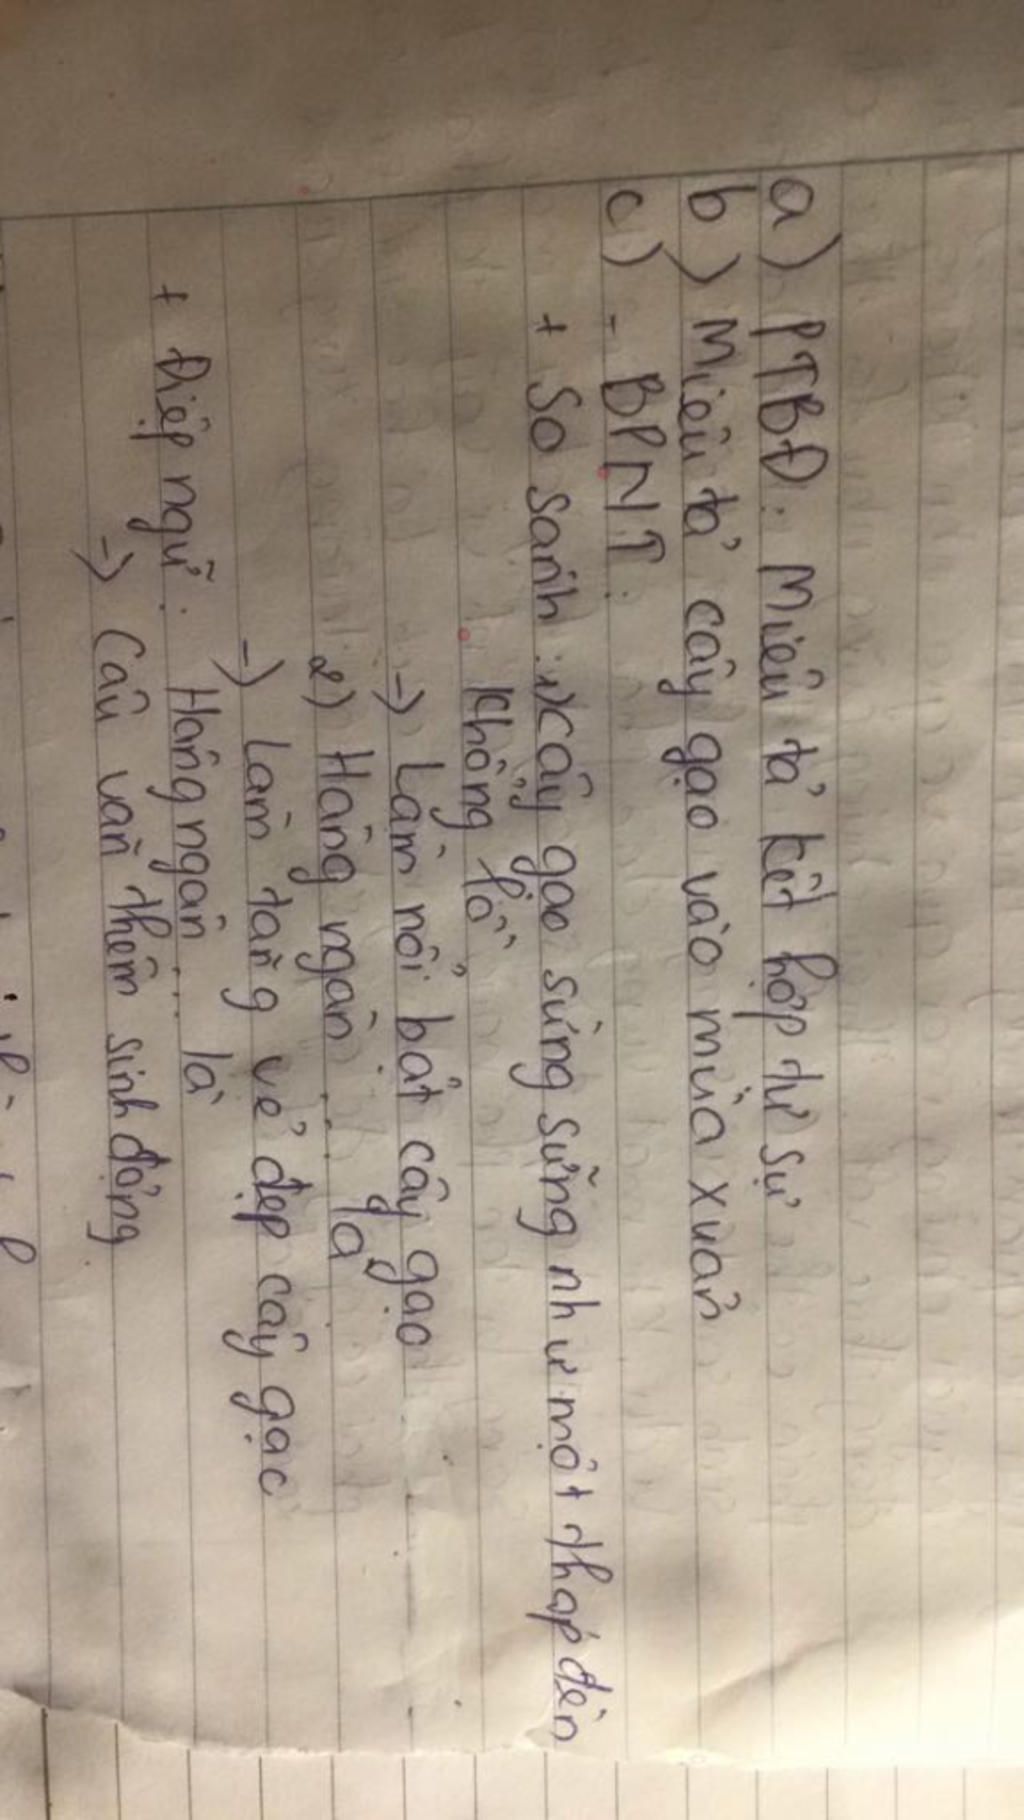 a) PTBĐ: Miêu tả kết hợp tự sự
b) Miêu tả cây gạo vào mùa xuân
c) - BPNT:
+ So sánh: 1) Cây gạo sừng sững như một tháp đèn
khổng lồ"
-> Làm nổi bật cây gạo
2) Hàng ngàn .... là
-> Làm tăng vẻ đẹp cây gạc
+ Điệp ngữ: Hàng ngàn ... là
-> Câu văn thêm sinh động